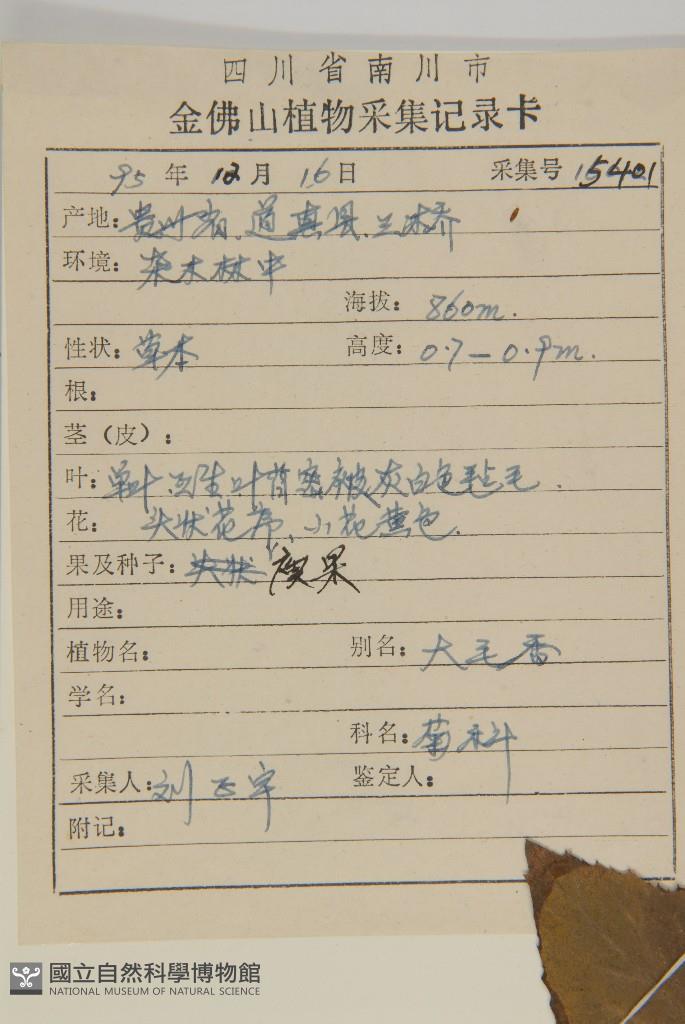 四川省南川市
金佛山植物采集记录卡
95年 12月 16日 采集号 15401
产地:贵州省.道真县.三木桥
环境:杂木林中
海拔: 860m.
性状:草本 高度:0.7—0.9m.
根:
茎(皮):
叶:单叶互生叶背密被灰白色毡毛.
花: 头状花序,小花黄色.
果及种子: 瘦果
用途:
植物名: 别名:大毛香
学名:
科名:菊科
采集人:刘正宇 鉴定人:
附记:
國立自然科學博物館
NATIONAL MUSEUM OF NATURAL SCIENCE